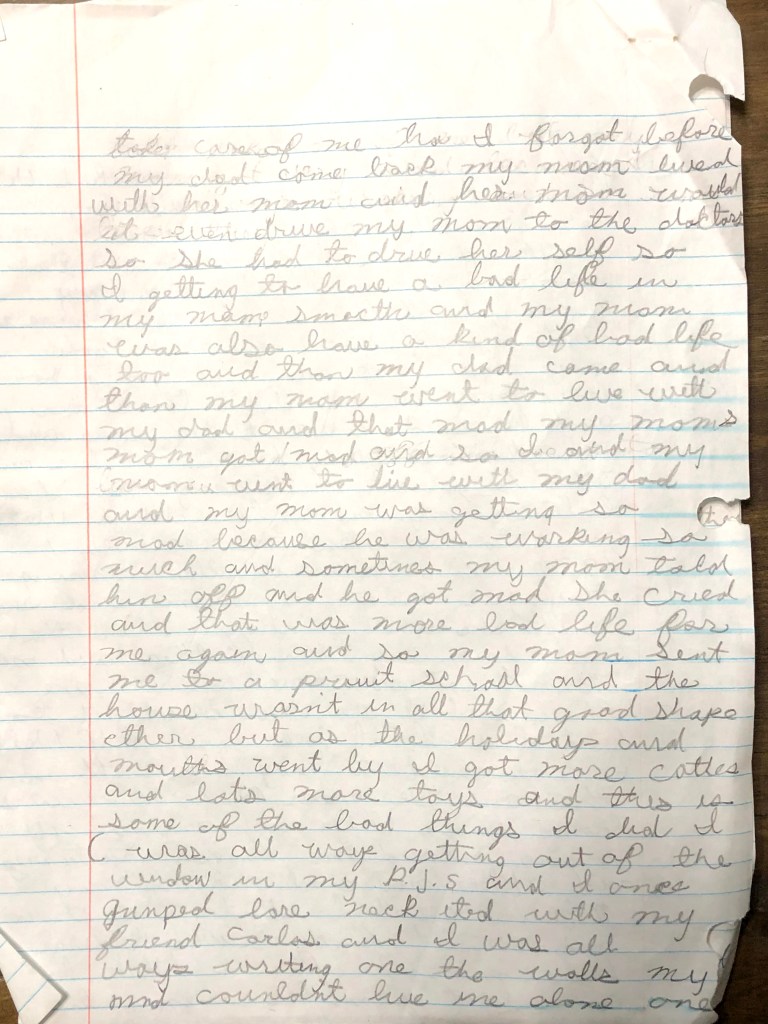 take care of me tho I forgot before
my dad come back my mom lived
with her mom and her mom would
nt even drive my mom to the doctors
so she had to drive her self so
I getting to have a bad life in
my moms and my mom
was also have a kind of bad life
too and than my dad came and
than my mom went to live with
my dad and that mad my moms
mom got mad and so I and my
mom went to live with my dad
and my mom was getting so
mad because he was working so
much and sometimes my mom told
him off and he got mad she cried
and that was more bad life for
me again and so my mom sent
me to a school and the
house wasn't in all that good shape
ether but as the holidays and
mouths went by I got more
and lots more toys and this is
some of the bad things I did I
( was all ways getting out of the
window in my P.J.s and I once
gumped with my
friend Carlos and I was all
ways writing one the walls my
mind live me alone one